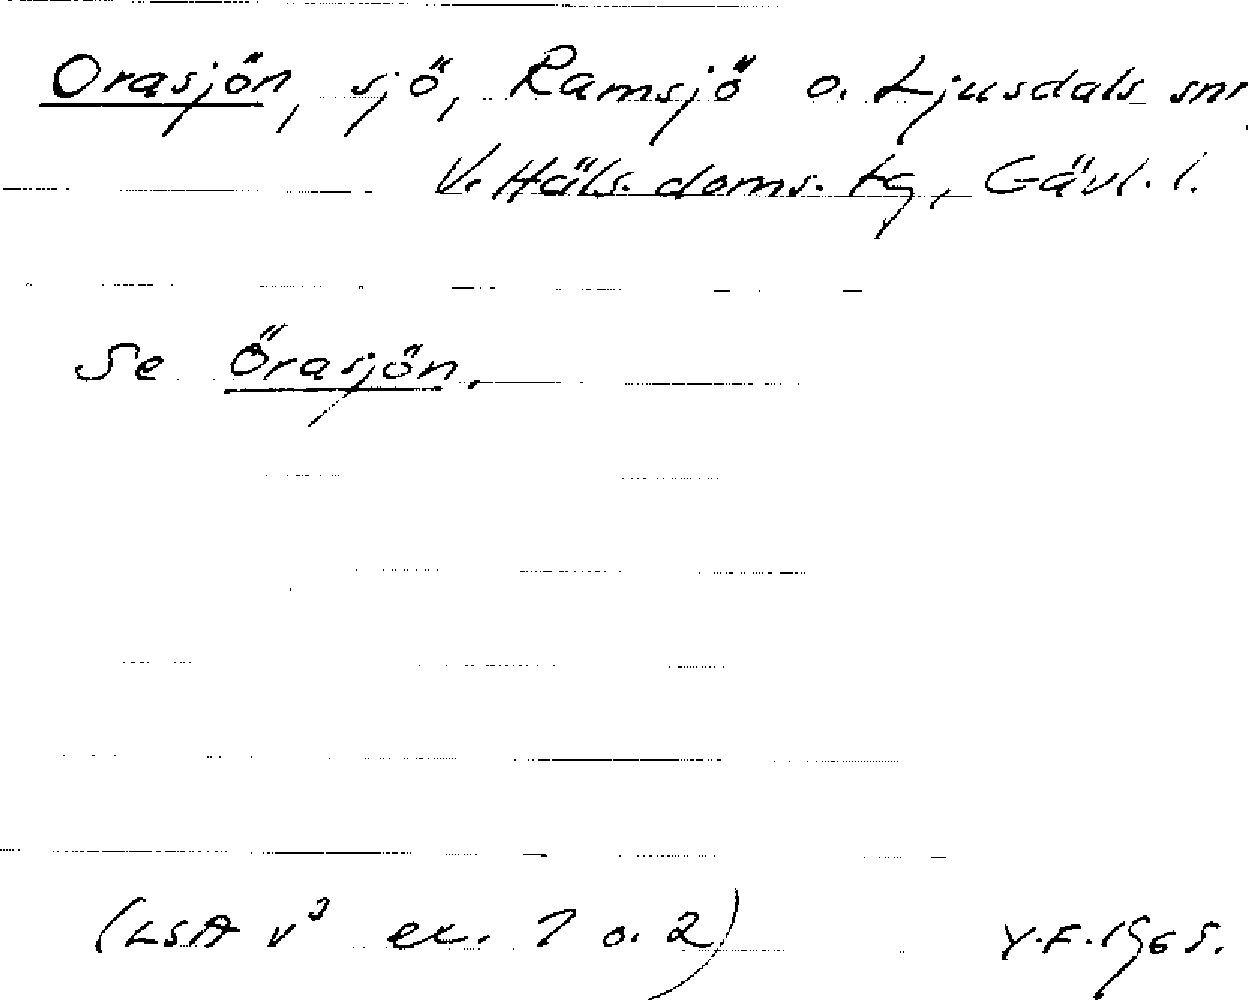 Orasjön, sjö, Ramsjö o. Ljusdals snr,
V. Häls. doms. tg, Gävl. l.
Se Örasjön.
(LSA v³ ex. 1 o. 2) Y.F. 1965.